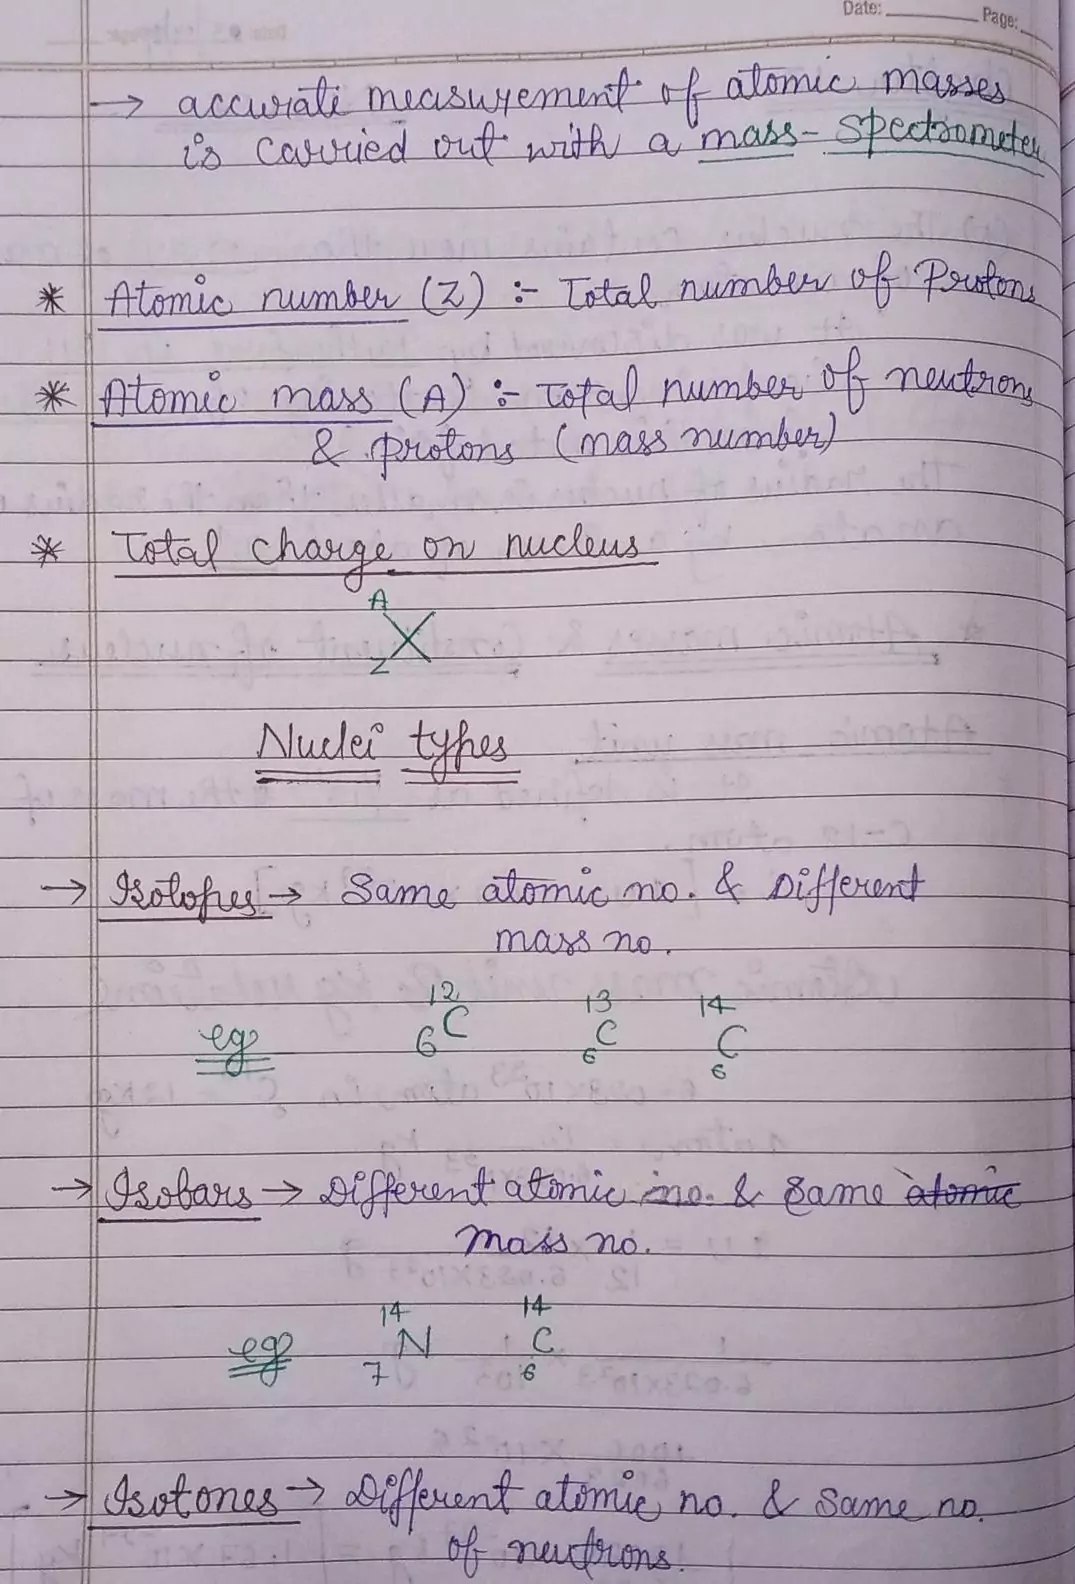 Date: Page:
→ accurate measurement of atomic masses
is carried out with a mass-spectrometer
* Atomic number (Z) :- Total number of Protons
* Atomic mass (A) :- Total number of neutrons
& protons (mass number)
* Total charge on nucleus
A
X
Z
Nuclei types
→ Isotopes → Same atomic no. & Different
mass no.
eg 12 6 C 13 6 C 14 6 C
→ Isobars → Different atomic no. & same atomic
mass no.
eg 14 7 N 14 6 C
→ Isotones → Different atomic no. & same no.
of neutrons.